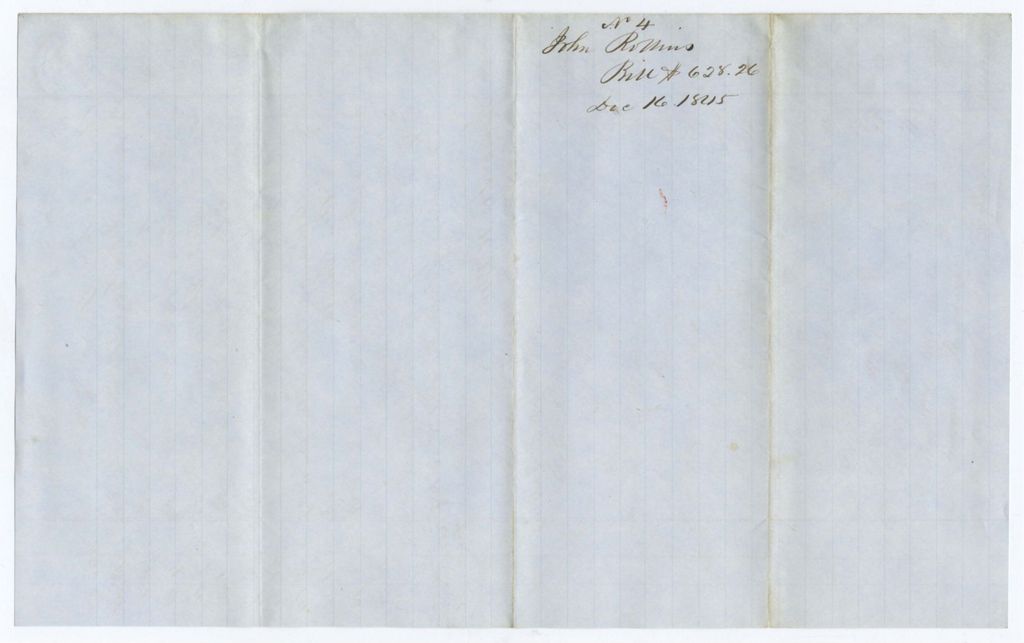 No 4
John Rollins
Bill $ 628.26
Dec 16 1845